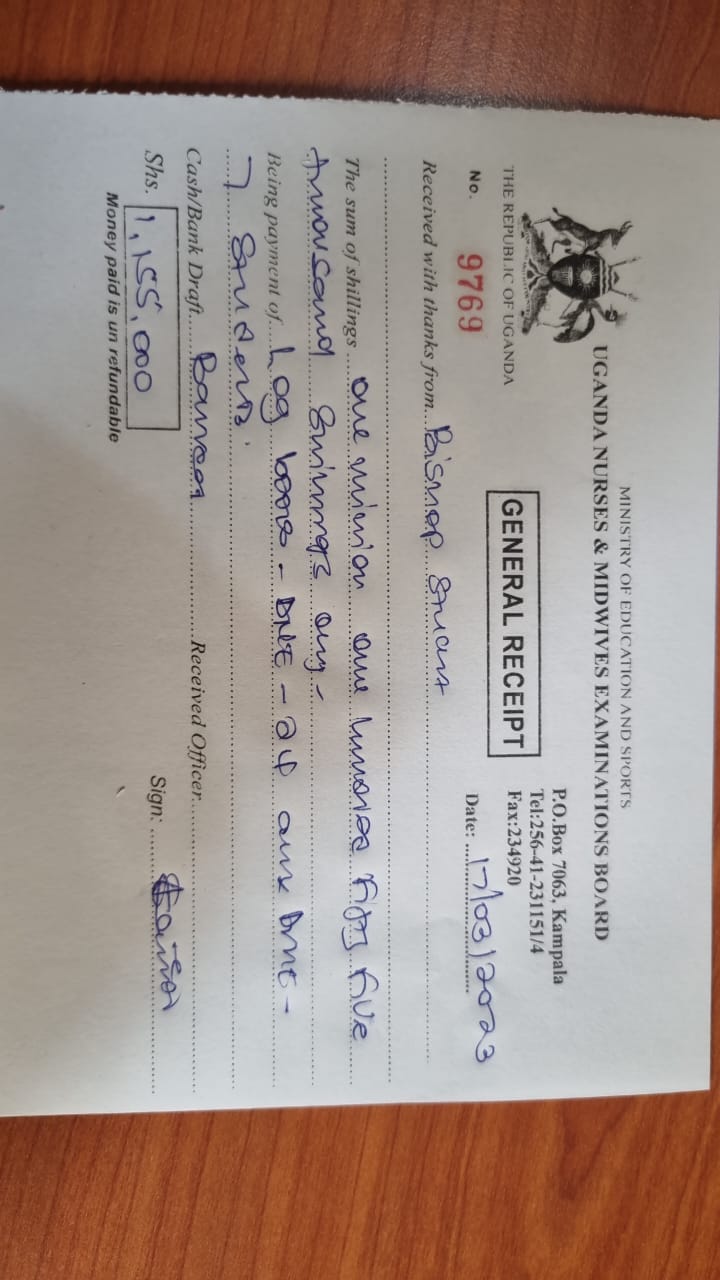 MINISTRY OF EDUCATION AND SPORTS
UGANDA NURSES & MIDWIVES EXAMINATIONS BOARD
THE REPUBLIC OF UGANDA
P.O.Box 7063, Kampala
Tel:256-41-231151/4
Fax:234920
GENERAL RECEIPT
No. 9769
Date: 17/03/2023
Received with thanks from Bishop Stuart
The sum of shillings one million one hundred fifty five
thousand shillings only-
Being payment of Log books - DNE - 24 and DME -
7 students.
Cash/Bank Draft Received Officer
Shs. 1,155,000 Sign:
Money paid is un refundable